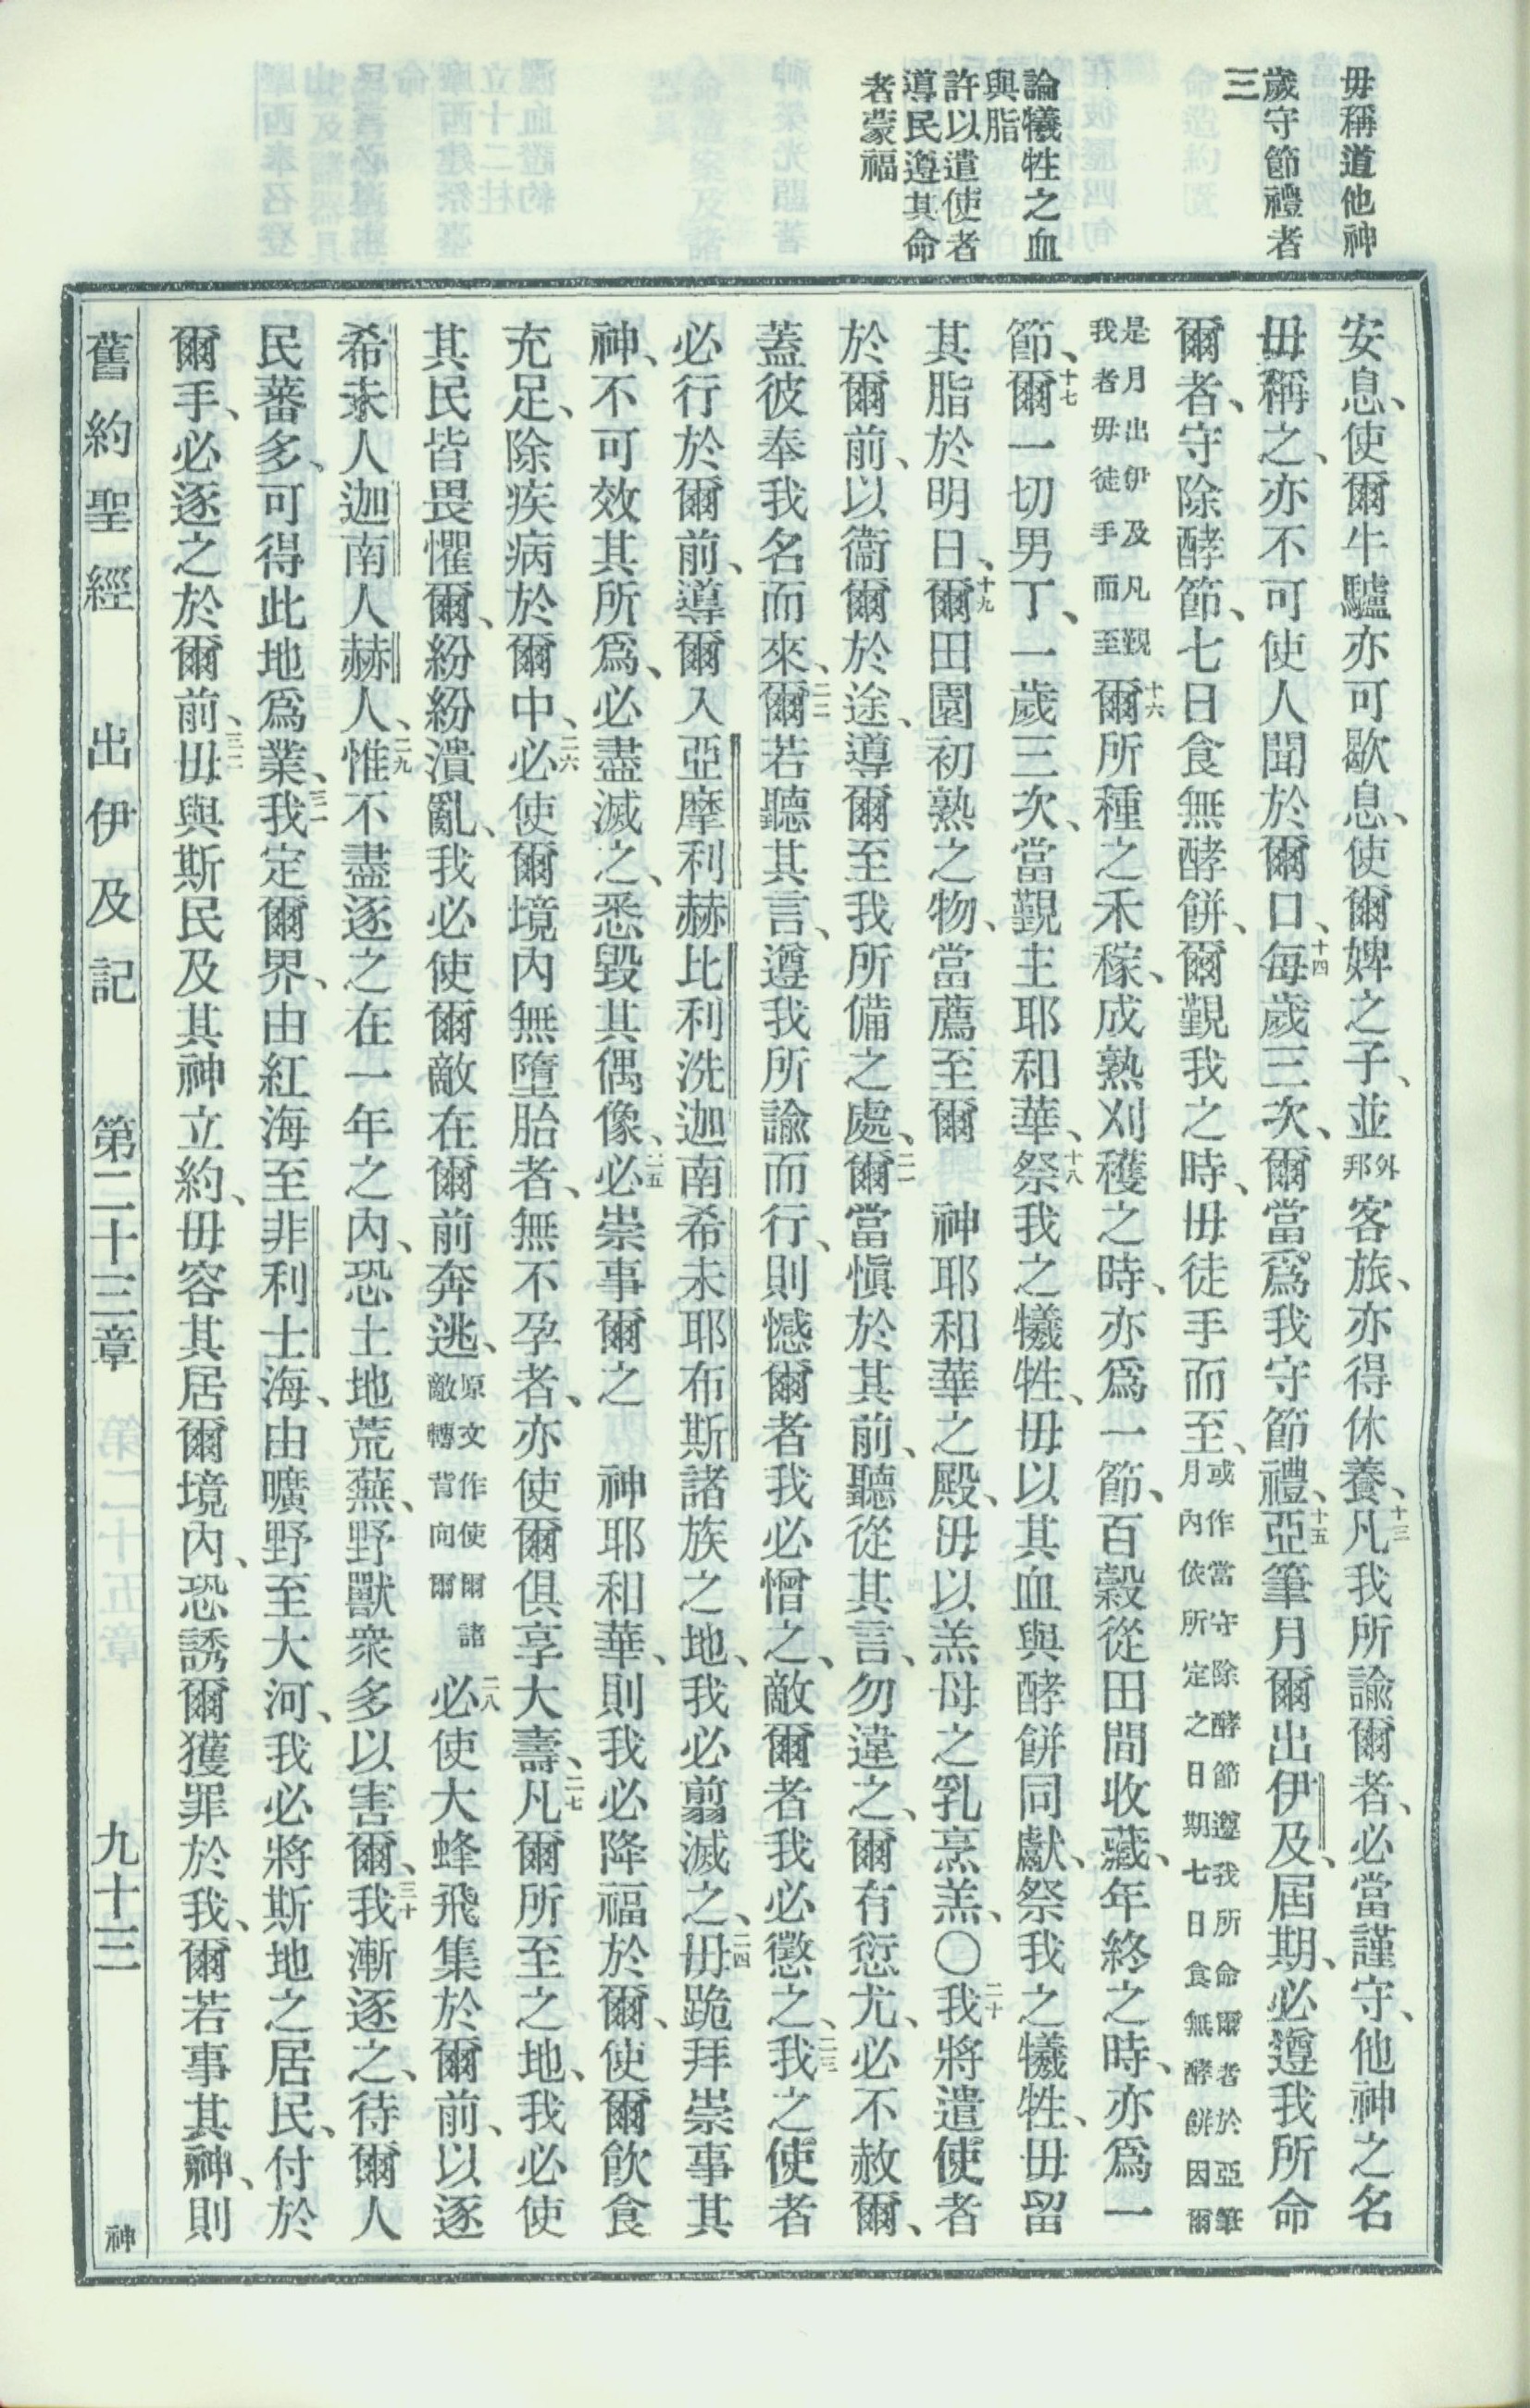 毋稱道他神
歲守節禮者
三
論犧牲之血
與脂
許以遣使者
導民遵其命
者蒙福
安息、使爾牛驢亦可歇息、使爾婢之子、並外邦客旅、亦得休養、十三凡我所諭爾者、必當謹守、他神之名
毋稱之、亦不可使人聞於爾口、十四每歲三次、爾當爲我守節禮、十五亞筆月爾出伊及、屆期、必遵我所命
爾者、守除酵節、七日食無酵餅、爾覲我之時、毋徒手而至、或作當守除酵節遵我所命爾者於亞筆月內依所定之日期七日食無酵餅因爾
是月出伊及凡覲我者毋徒手而至十六爾所種之禾稼、成熟刈穫之時、亦爲一節、百穀從田間收藏、年終之時、亦爲一
節、十七爾一切男丁、一歲三次、當覲主耶和華、十八祭我之犧牲、毋以其血與酵餅同獻、祭我之犧牲、毋留
其脂於明日、十九爾田園初熟之物、當薦至爾　神耶和華之殿、毋以羔母之乳烹羔、〇二十我將遣使者
於爾前、以衞爾於途、導爾至我所備之處、二一爾當愼於其前、聽從其言、勿違之、爾有愆尤、必不赦爾、
蓋彼奉我名而來、二二爾若聽其言、遵我所諭而行、則憾爾者我必憎之、敵爾者我必懲之、二三我之使者
必行於爾前、導爾入亞摩利赫比利洗迦南希未耶布斯諸族之地、我必翦滅之、二四毋跪拜崇事其
神、不可效其所爲、必盡滅之、悉毀其偶像、二五必崇事爾之　神耶和華、則我必降福於爾、使爾飲食
充足、除疾病於爾中、二六必使爾境內無墮胎者、無不孕者、亦使爾俱享大壽、二七凡爾所至之地、我必使
其民皆畏懼爾、紛紛潰亂、我必使爾敵在爾前奔逃、原文作使爾諸敵轉背向爾二八必使大蜂飛集於爾前、以逐
希未人迦南人赫人、二九惟不盡逐之在一年之內、恐土地荒蕪、野獸衆多以害爾、三十我漸逐之、待爾人
民蕃多、可得此地爲業、三一我定爾界、由紅海至非利士海、由曠野至大河、我必將斯地之居民、付於
爾手、必逐之於爾前、三二毋與斯民及其神立約、毋容其居爾境內、恐誘爾獲罪於我、爾若事其神、則
舊約聖經　出伊及記　第二十三章　九十三　神